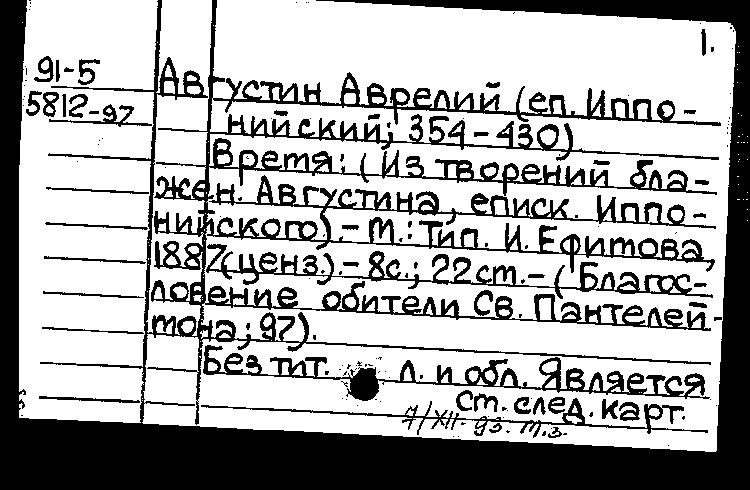 1.
91-5 Августин Аврелий (еп. Иппо-
5812-97 нийский; 354-430)
Время: (Из творений бла-
жен. Августина, еписк. Иппо-
нийского).- М.: Тип. И. Ефимова,
1887(ценз.).- 8с.; 22 cm.- (Благос-
ловение обители Св. Пантелей-
мона; 97).
Без тит. л. и обл. Является
ст. след. карт.
7/XII-93. м.з.